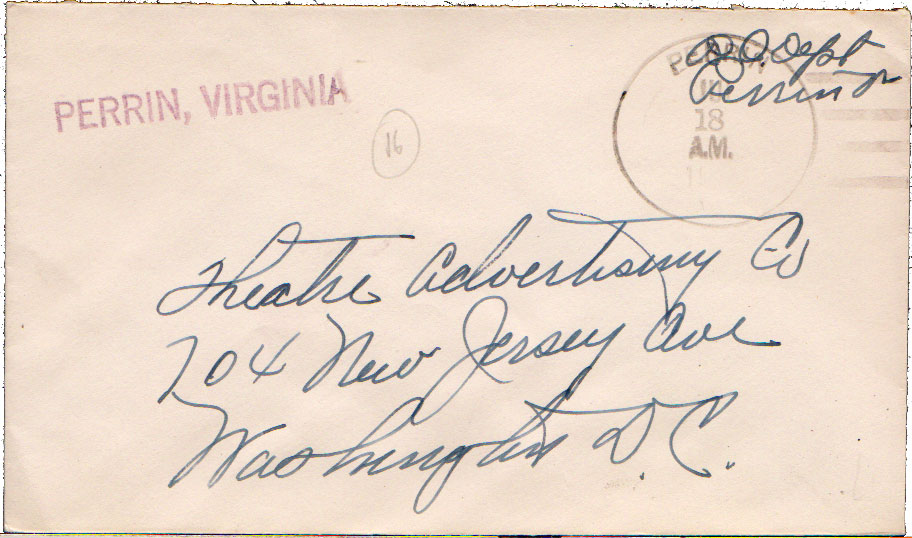 PERRIN, VIRGINIA
16
P. O. Dept
Perrin Va
PERRIN
18
A.M.
Theatre Advertising Co
704 New Jersey Ave
Washington D.C.